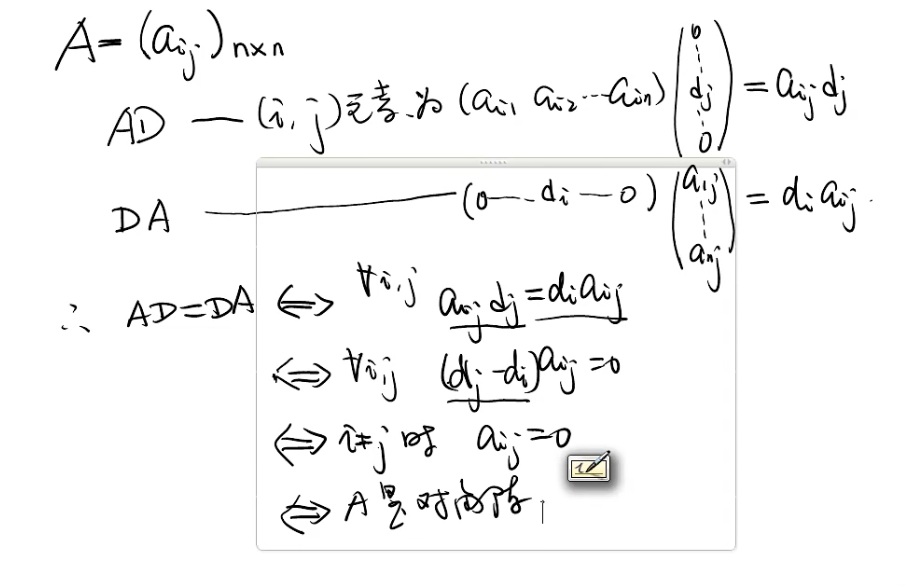 A=(aij)n×n
AD —(i,j)元素为(ai1 ai2 ··· ain)(0 ⋮ dj ⋮ 0) = aij dj
DA ——— (0 --- di — 0)(a1j ⋮ anj) = di aij.
∴ AD=DA ⟺ ∀i,j aij dj = di aij
⟺ ∀i,j (dj - di)aij =0
⟺ i≠j时 aij=0
⟺ A是对角阵,